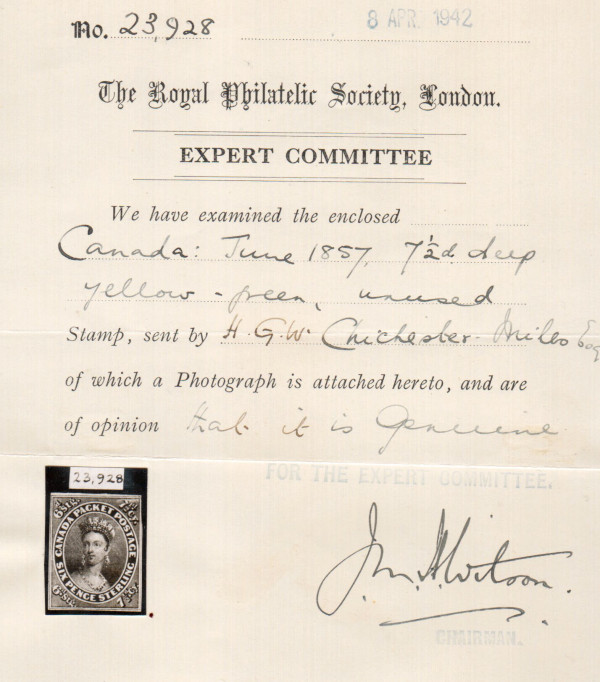 No. 23,928
8 APR. 1942
The Royal Philatelic Society, London.
EXPERT COMMITTEE
We have examined the enclosed
Canada: June 1857, 7½d. deep
yellow-green, unused
Stamp, sent by H.G.W. Chichester-Miles Esq
of which a Photograph is attached hereto, and are
of opinion that it is Genuine
FOR THE EXPERT COMMITTEE.
23,928
CANADA PACKET POSTAGE
SIX PENCE STERLING
CHAIRMAN.